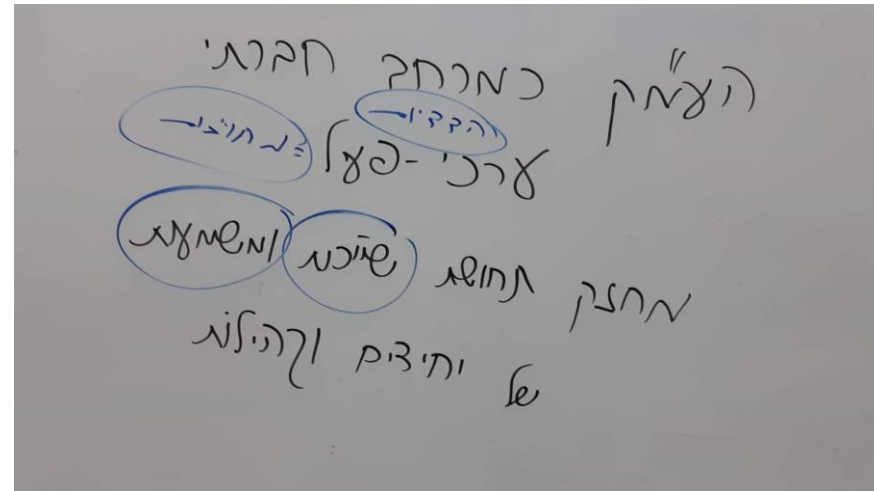 העמ"ק כמרחב חברתי
והדדיות
ערכי-פעל
מחזק תחושת שייכות ומשמעות
של יחידים וקהילות